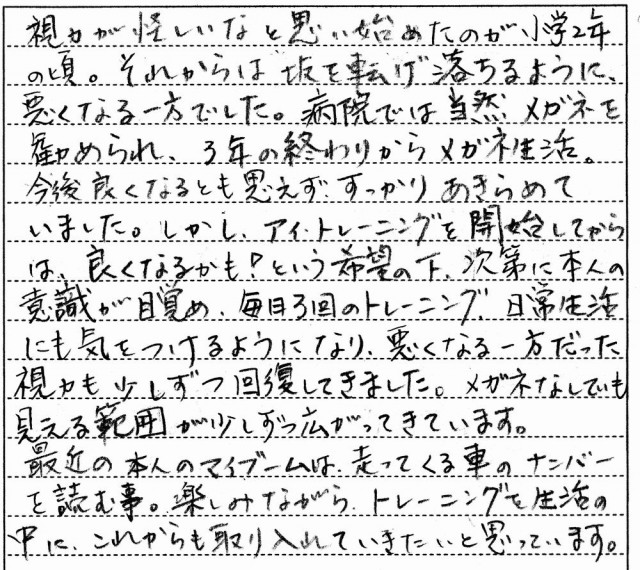 視力が怪しいなと思い始めたのが小学2年
の頃。それからは坂を転げ落ちるように、
悪くなる一方でした。病院では当然メガネを
勧められ、3年の終わりからメガネ生活。
今後良くなるとも思えず、すっかりあきらめて
いました。しかし、アイ・トレーニングを開始してから
は、良くなるかも!という希望の下、次第に本人の
意識が目覚め、毎日3回のトレーニング、日常生活
にも気をつけるようになり、悪くなる一方だった
視力も少しずつ回復してきました。メガネなしでも
見える範囲が少しずつ広がってきています。
最近の本人のマイブームは、走ってくる車のナンバー
を読む事。楽しみながら、トレーニングを生活の
中に、これからも取り入れていきたいと思っています。